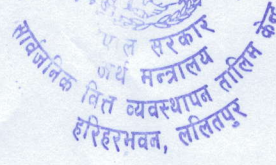 सरकार
अर्थ मन्त्रालय
सार्वजनिक वित्त व्यवस्थापन तालिम
हरिहरभवन, ललितपुर